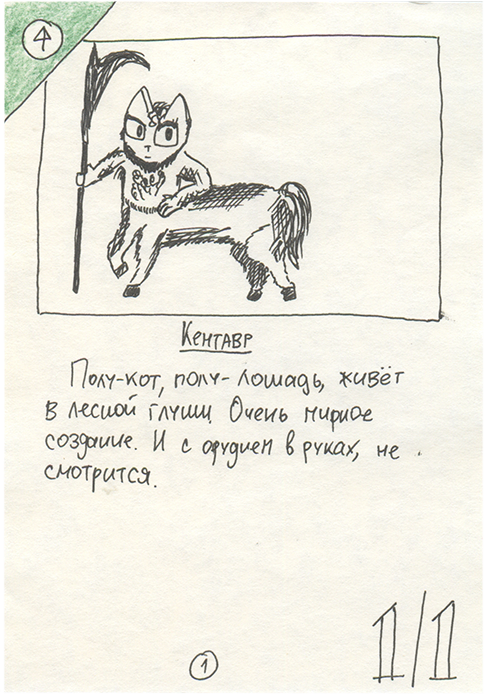 4
Кентавр
Полу-кот, полу-лошадь, живёт
в лесной глуши. Очень мирное
создание. И с орудием в руках, не
смотрится.
1/1
1